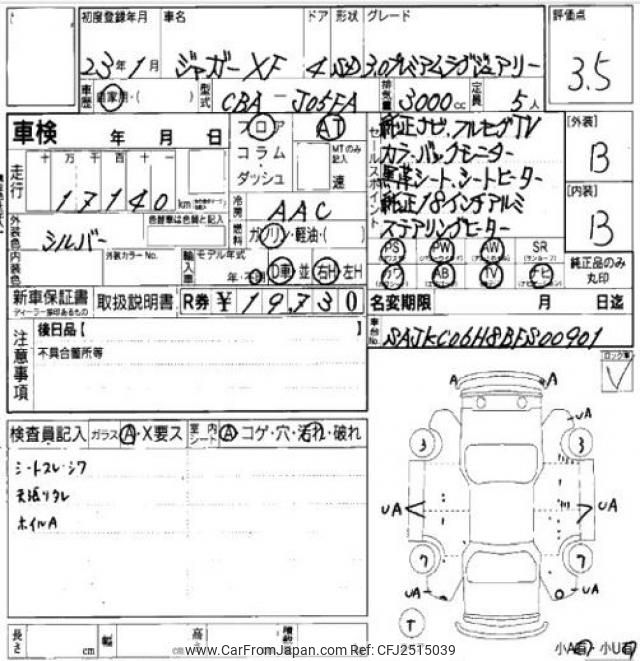 初度登録年月 車名 ドア 形状 グレード 評価点
23年1月 ジャガー XF 4 SD 3.0プレミアムラグジュアリー 3.5
車歴 自家用・( ) 型式 CBA - J05FA 排気量 3000cc 定員 5人
車検 年 月 日
フロア AT
コラム・ MTのみ記入
ダッシュ 速
セールスポイント
純正ナビ、フルセグTV
カラーバックモニター
黒革シート、シートヒーター
純正18インチアルミ
ステアリングヒーター
[外装]
B
[内装]
B
走行 十 万 千 百 十 一
17140 km
冷房 AAC
外装色 シルバー 色替車は色替と記入
燃料 ガソリン・軽油・( )
PS PW AW SR
カワ AB TV ナビ
純正品のみ丸印
内装色 外装カラーNo. 輸入車 モデル年式 年・不明 D車 並 右H・左H
新車保証書 ディーラー捺印あるもの 取扱説明書 R券 ¥19,730
名変期限 月 日迄
車台No. SAJKC06H8BFS00901
注意事項
後日品【 】
不具合箇所等
検査員記入 ガラス A・X要ス 室内シート A コゲ・穴・汚れ・破れ
シートスレ・シワ
天張リタレ
ホイルA
A A
UA
3 3
UA UA
7 7
UA UA
T
長さ cm 幅 cm 高さ cm
小A有 小U有
www.CarFromJapan.com Ref: CFJ2515039